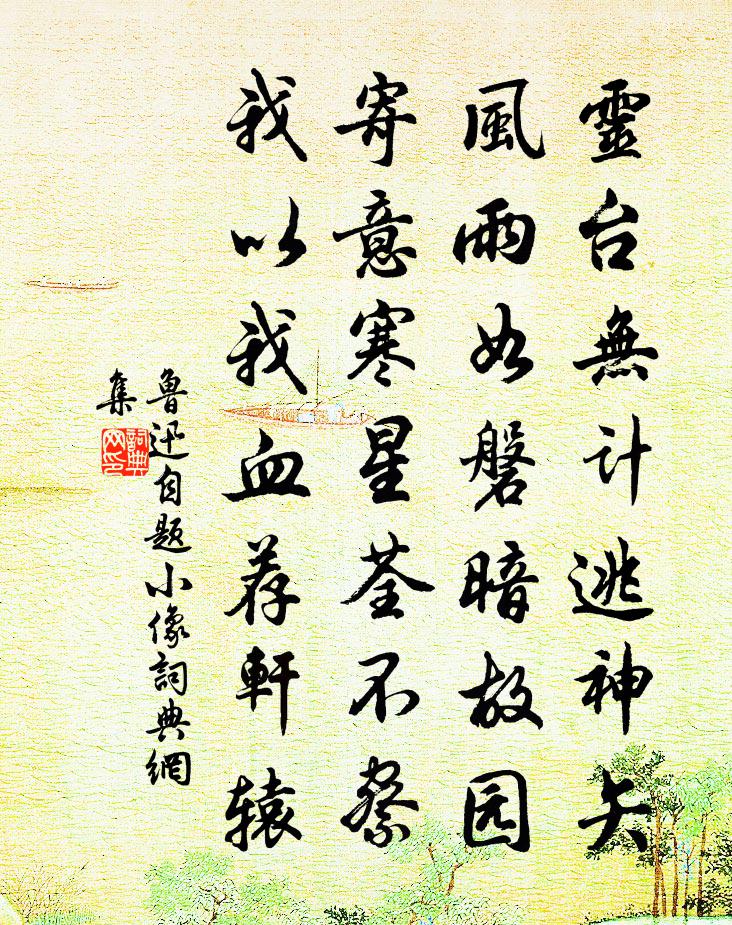 靈台無計逃神矢
風雨如磐暗故园
寄意寒星荃不察
我以我血荐軒辕
魯迅自题小像詞典網
集
詞典
网印